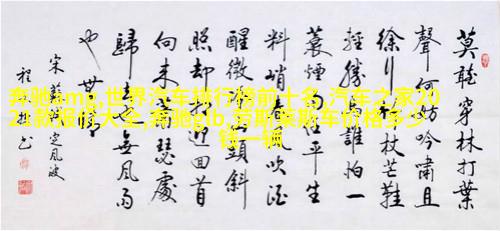 莫聽穿林打葉
聲何妨吟嘯且
徐行竹杖芒鞋
輕勝馬誰怕一
蓑煙雨任平生
料峭春風吹酒
醒微冷山頭斜
照却相迎回首
向来蕭瑟處
歸去也無風雨
也無晴
宋蘇軾定風波
奔驰amg,世界汽车排行榜前十名,汽车之家202
1款报价大全,奔驰glb,劳斯莱斯车价格多少
钱一辆